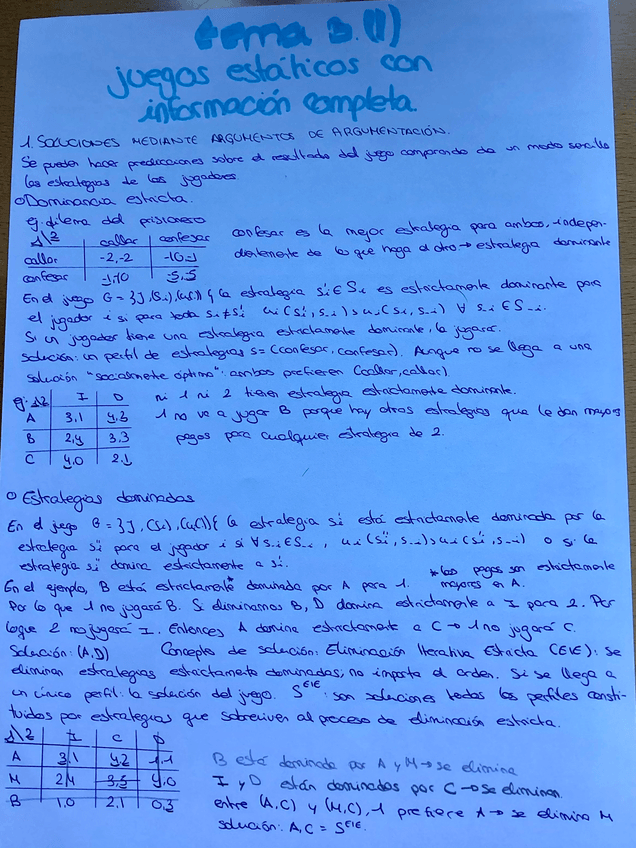 tema 3.(1)
juegos estáticos con
información completa.
1. SOLUCIONES MEDIANTE ARGUMENTOS DE ARGUMENTACIÓN.
Se pueden hacer predicciones sobre el resultado del juego comparando de un modo sencillo
las estrategias de los jugadores
Dominancia estricta.
ej. dilema del prisionero
1\2 callar confesar
callar -2,-2 -10,-1
confesar -1,-10 -5,-5
confesar es la mejor estrategia para ambos, indepen-
dientemente de lo que haga el otro → estrategia dominante
En el juego G = {J, (Si), (ui)} la estrategia si' ∈ Si es estrictamente dominante para
el jugador i si para toda si ≠ si' ui (si', s-i) > ui (si, s-i) ∀ s-i ∈ S-i.
Si un jugador tiene una estrategia estrictamente dominante, la jugará.
Solución: un perfil de estrategias s = (confesar, confesar). Aunque no se llega a una
solución "socialmente óptima": ambos prefieren (callar, callar)
ej. 1\2 I D
A 3,1 4,2
B 2,4 3,3
C 4,0 2,1
ni 1 ni 2 tienen estrategia estrictamente dominante.
1 no va a jugar B porque hay otras estrategias que le dan mayores
pagos para cualquier estrategia de 2.
Estrategias dominadas
En el juego G = {J, (Si), (ui)} la estrategia si' está estrictamente dominada por la
estrategia si'' para el jugador i si ∀ s-i ∈ S-i, ui (si'', s-i) > ui (si', s-i) o si la
estrategia si'' domina estrictamente a si'.
En el ejemplo, B está estrictamente* dominada por A para 1.
*los pagos son estrictamente
mayores en A.
Por lo que 1 no jugará B. Si eliminamos B, D domina estrictamente a I para 2. Por
lo que 2 no jugará I. Entonces A domina estrictamente a C → 1 no jugará C.
Solución: (A,D) Concepto de solución: Eliminación Iterativa Estricta (EIE): se
eliminan estrategias estrictamente dominadas, no importa el orden. Si se llega a
un único perfil: la solución del juego. S^EIE: son soluciones todos los perfiles consti-
tuidos por estrategias que sobreviven al proceso de eliminación estricta.
1\2 I C D
A 3,1 4,2 1,1
M 2,4 3,5 4,0
B 1,0 2,1 0,3
B está dominada por A y M → se elimina
I y D están dominados por C → se eliminan
entre (A,C) y (M,C), 1 prefiere A → se elimina M
solución: A,C = S^EIE.